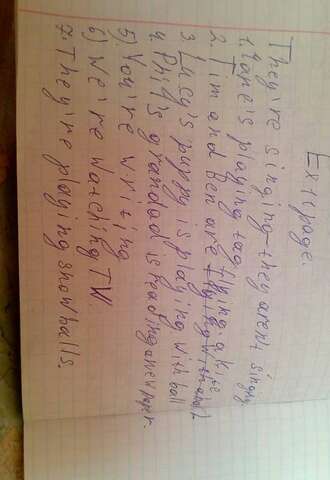 Ex 1 page.
They're singing – they aren't singing.
1. Jane's playing tag.
2. Tim and Ben are flying a kite
3 Lucy's puppy is playing with ball
4. Phil's grandad is reading a newpaper.
5) You're writing
6) We're watching TV.
7. They're playing snowballs.